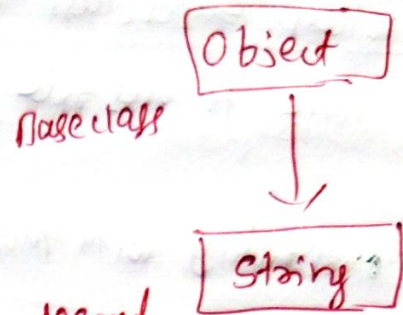 Object
Base class
String